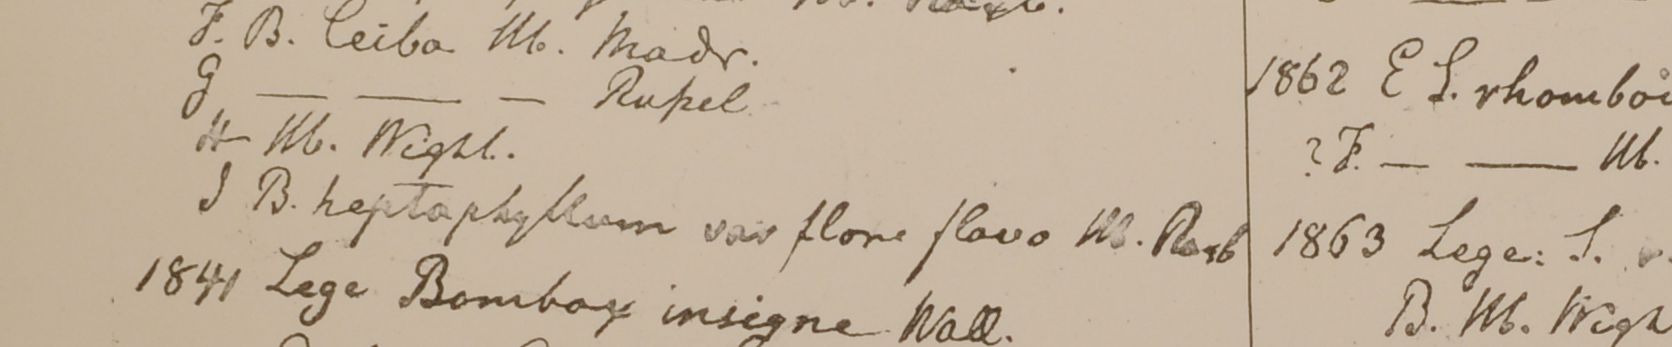 Hb. Roxb.
F. B. Ceiba Hb. Madr.
G — — — Rupel
H Hb. Wight.
I B. heptaphyllum var flore flavo Hb. Roxb
1841 Lege Bombax insigne Wall.
1862 E S. rhomboi
? F. — — Hb.
1863 Lege: S. r.
B. Hb. Wigh